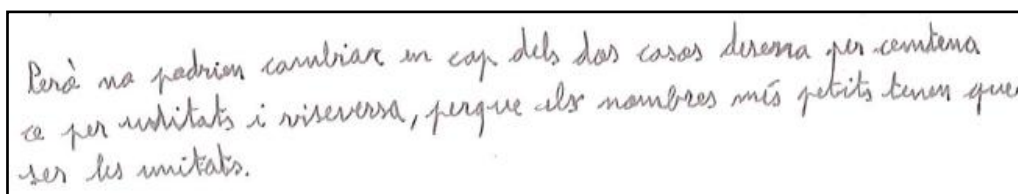 Però no podrien cambiar en cap dels dos casos desena per centena
ce per unitats i viseversa, perque els nombres més petits tenen que
ser les unitats.